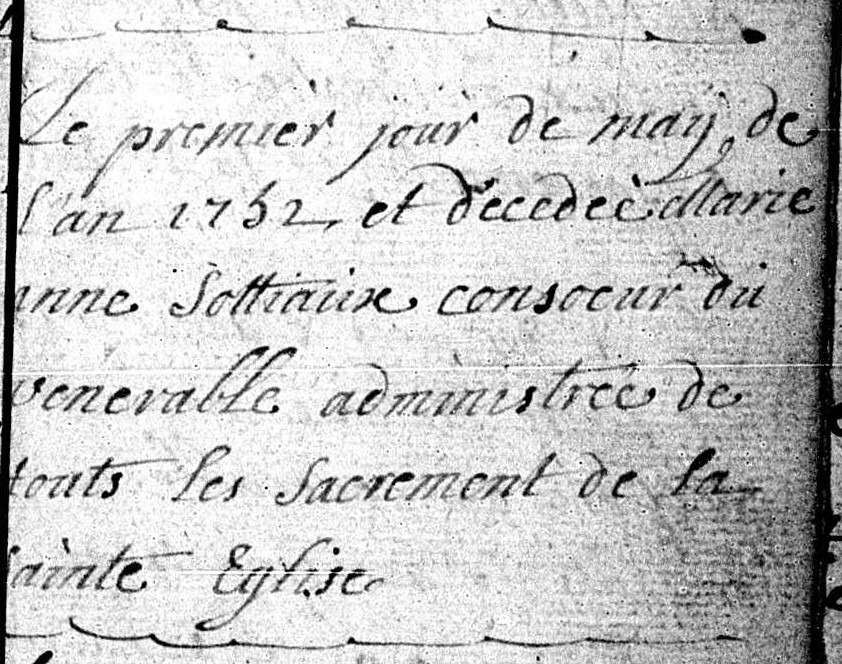 Le premier jour de maÿ de
l'an 1752 et decedeè Marie
anne Sottiaux consoeur du
venerable administreè de
touts les Sacrement de la
sainte Eglise